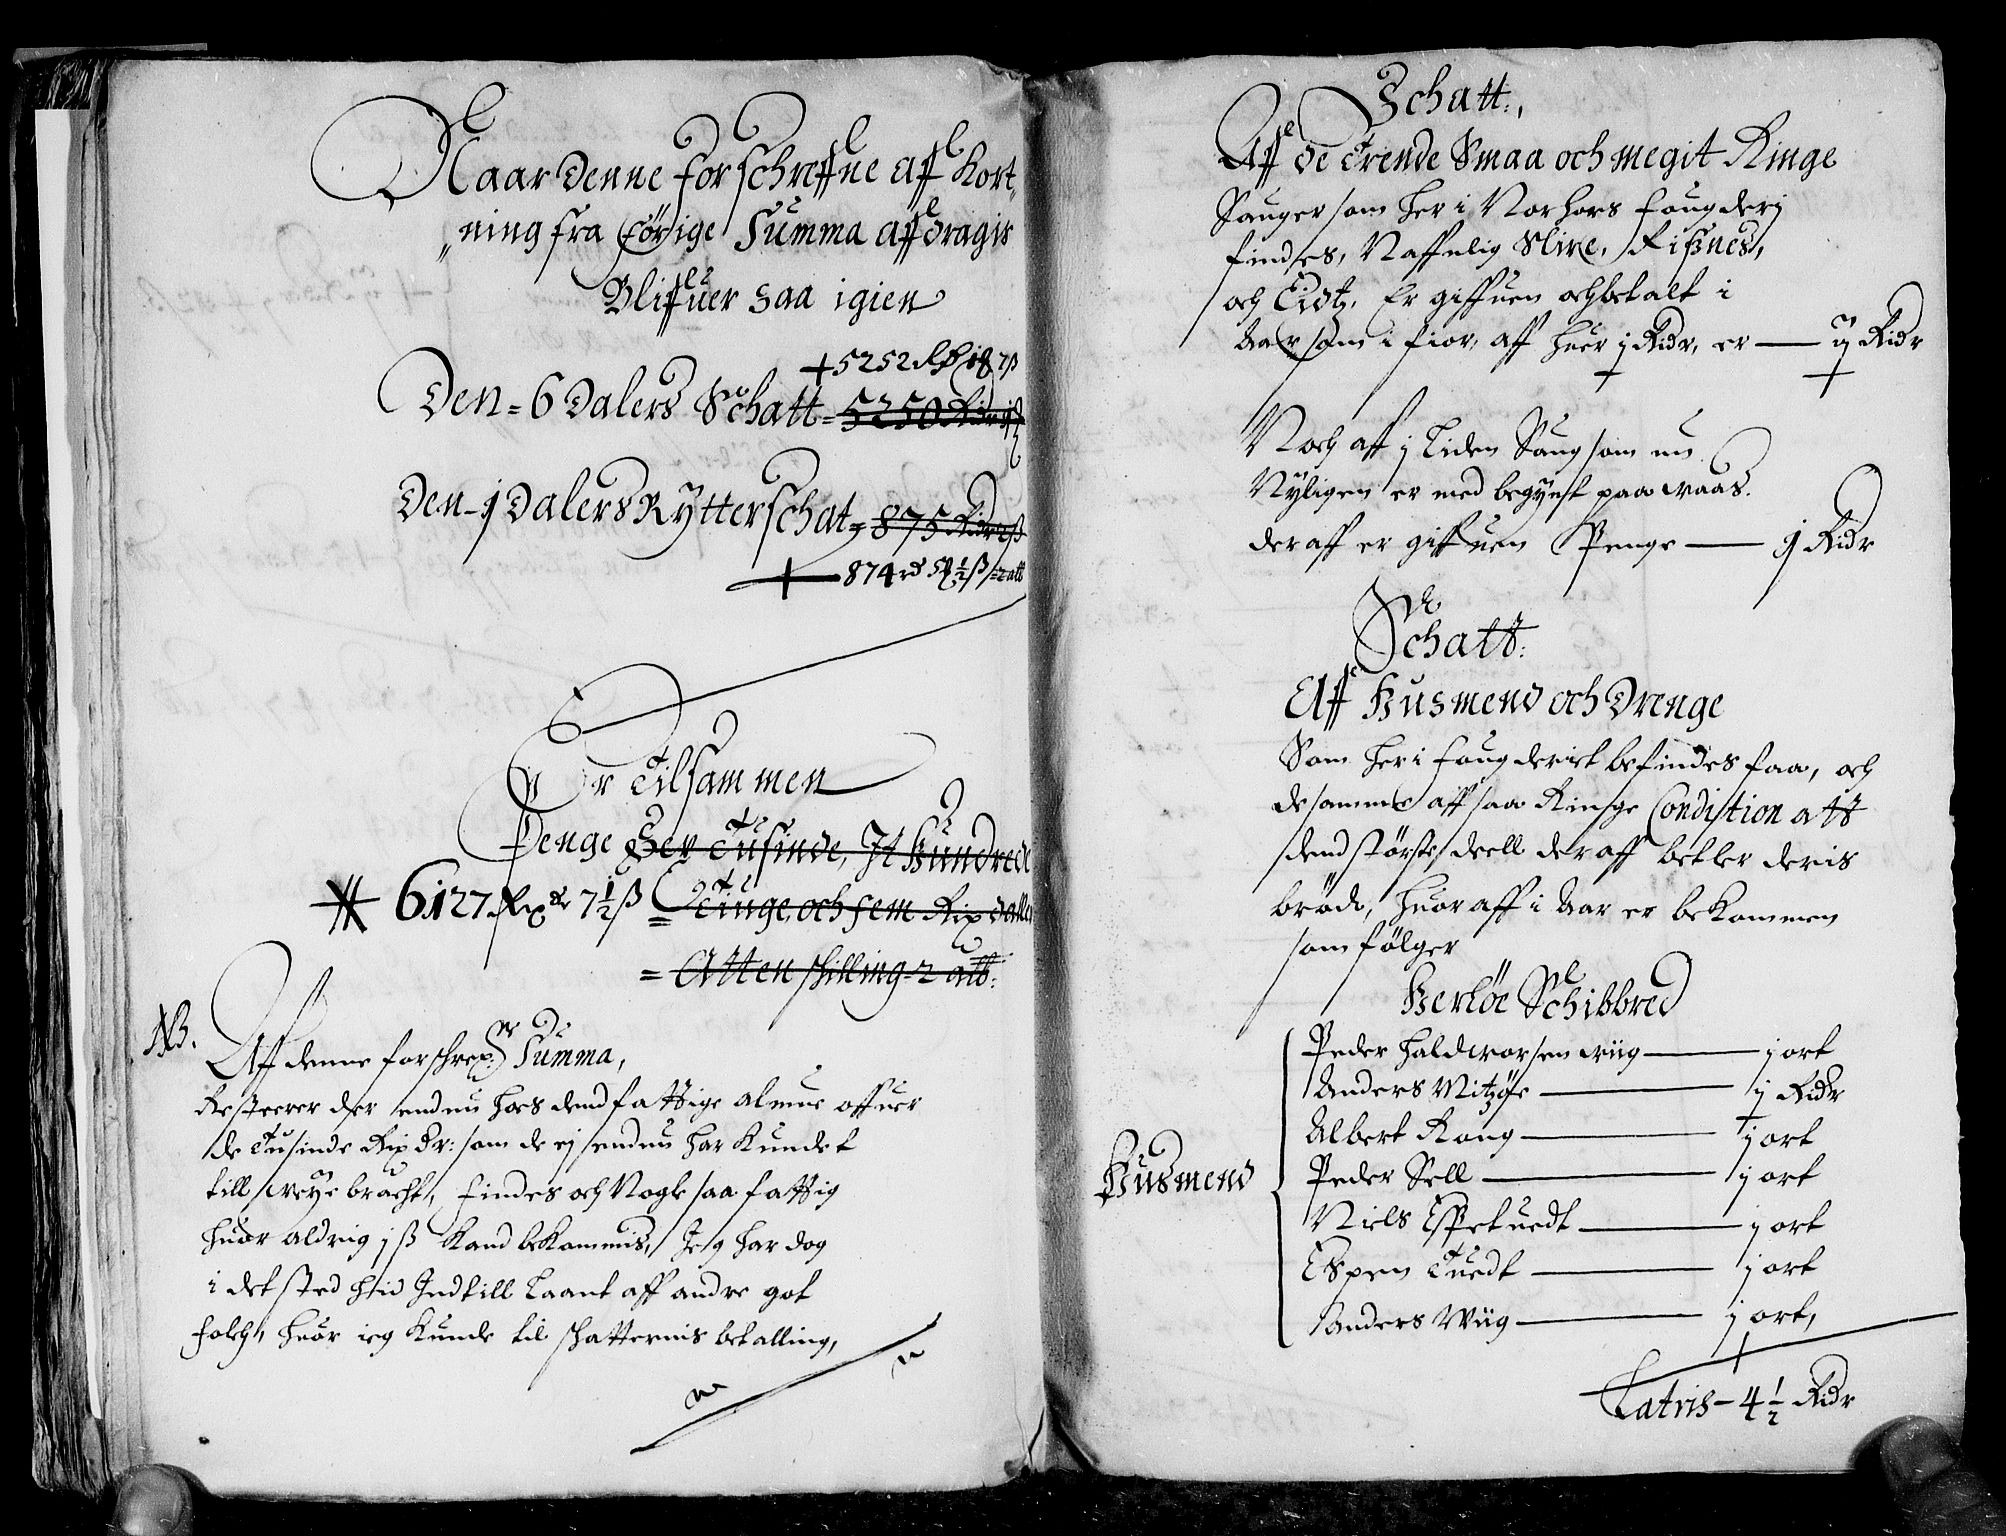 Naar Denne forschreffne Aff Kort-
ning fra forige Summa affdragis
Bliffuer saa igien
+ 5252 Rdr 1 ort 18 7 ß
Den = 6 Dalers Schatt = 5250 Ridr
Den - j Dalers Rytterschat = 875 Ridr 2 ß
+ 874 rd 58 1/2 ß = 2 alb
Er Tilsammen
Penge Sex Tusinde, It Hundrede
6127 Rix dr 7 1/2 ß = Tiuge, och fem Rix daller
= Atten skilling = 2 alb:
NB. Aff denne forschreffne Summa,
Resterer der endnu hoes dend fattige almue offuer
de Tusinde Rix Dr: som de ej endnu har kundet
till weye bracht, findes och Nogle saa fattig
huor aldrig j ß kand bekommis, Jeg har dog
i det sted hid Indtill Laant aff andre got
folch, huor ieg kunde til schatternis betalling,
Schatt.,
Aff de Trende Smaa och megit Ringe
Sauger som her i Norhors fougderj
findes, Naffnlig Slire, Fißnes,
och Eidtz, Er giffuen och betalt i
Aar som i fior, aff huer j Ridr, er — 3 Ridr
Noch aff j Liden Saug som nu
Nyligen er med begynt paa waas.
deraff er giffuen Penge — j Ridr
Schatt:
Aff Husmend och Drenge
Som her i fougderiet befindes faa, och
de samme aff saa Ringe Condistion att
dend største deell deraff betler deris
brøde, huoraff i Aar er bekommen
som følger
Herløe Schibbred
Husmend
Peder Haldworsen wiig — j ort
Anders Mitzøe — j Ridr
Albert Rong — j ort
Peder Sell — j ort
Niels Espetuedt — j ort
Espen Tuedt — j ort
Anders Wiig — j ort,
Latris - 4 1/2 Ridr